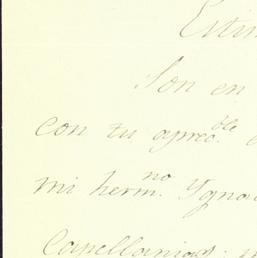 Son en
con tu aprec.ble
mi herm.no Ygna
Capellanias